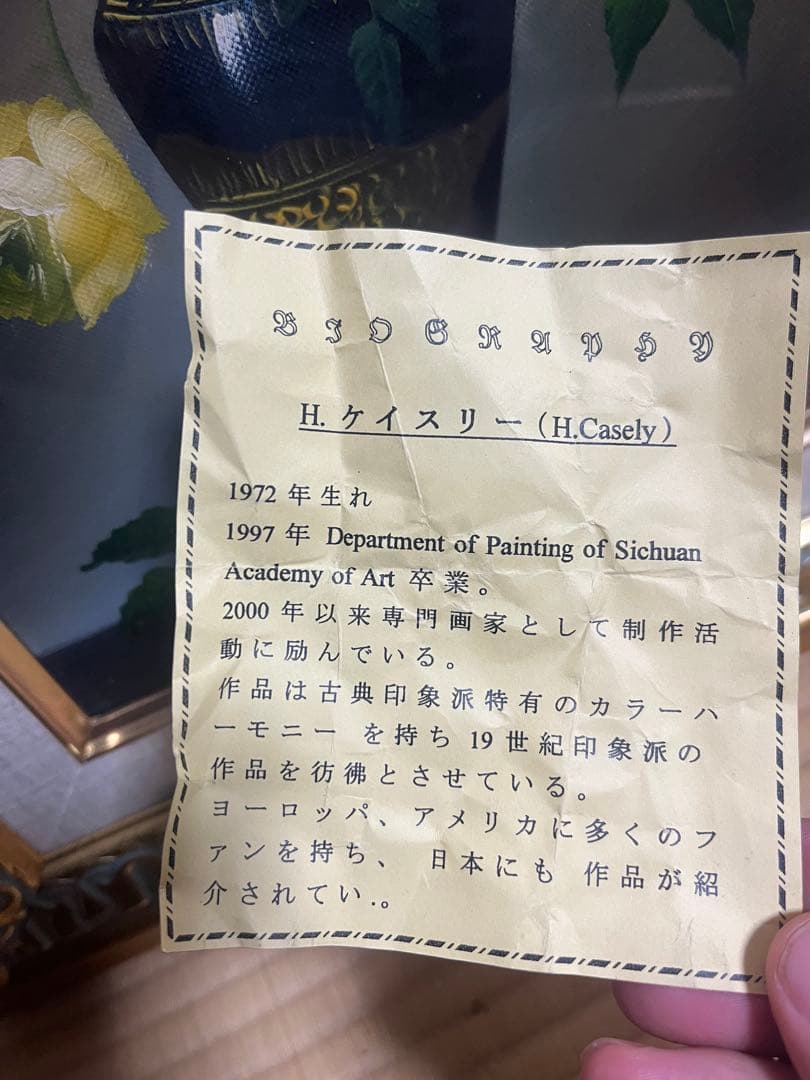 BIOGRAPHY
H. ケイスリー（H.Casely）
1972 年生れ
1997 年 Department of Painting of Sichuan
Academy of Art 卒業。
2000 年以来専門画家として制作活
動に励んでいる。
作品は古典印象派特有のカラーハ
ーモニー を持ち 19 世紀印象派の
作品を彷彿とさせている。
ヨーロッパ、アメリカに多くのフ
ァンを持ち、 日本にも 作品が紹
介されてい.。